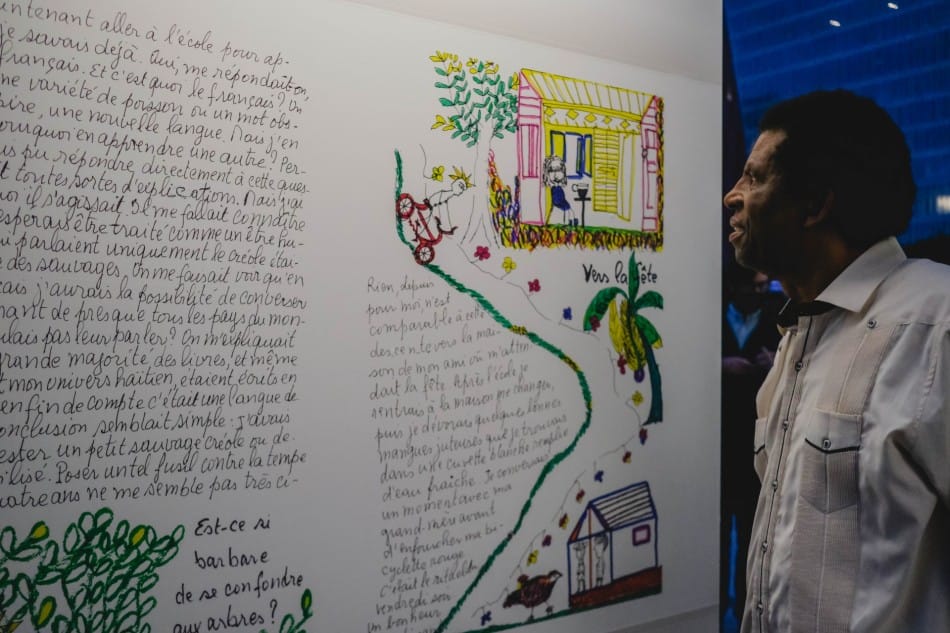 intenant aller à l'école pour ap-
je savais déjà. Oui, me répondait-on,
français. Et c'est quoi le français? Un
ne variété de poisson ou un mot obs-
bire, une nouvelle langue. Mais j'en
ourquoi en apprendre une autre? Per-
us pu répondre directement à cette ques-
t toutes sortes d'explications. Mais j'ai
quoi il s'agissait. Il me fallait connaître
espérais être traité comme un être hu-
ui parlaient uniquement le créole étai-
e des sauvages. On me faisait voir qu'en
çais j'aurais la possibilité de converser
nant de presque tous les pays du mon-
ulais pas leur parler? On m'expliquait
grande majorité des livres, et même
t mon univers haïtien, étaient écrits en
en fin de compte c'était une langue de
onclusion semblait simple: j'avais
ester un petit sauvage créole ou de-
ilisé. Poser un tel fusil contre la tempe
uatre ans ne me semble pas très ci-
Est-ce si
barbare
de se confondre
aux arbres?
Vers la fête
Rien, depuis
pour moi, n'est
comparable à cette
descente vers la mai-
son de mon ami où m'atten-
dait la fête. Après l'école je
rentrais à la maison me changer,
puis je dévorais quelques bonnes
mangues juteuses que je trouvais
dans une cuvette blanche remplie
d'eau fraîche. Je conversais
un moment avec ma
grand-mère avant
d'enfourcher ma bi-
cyclette rouge.
C'était le rituel du
vendredi soir
un bonheur